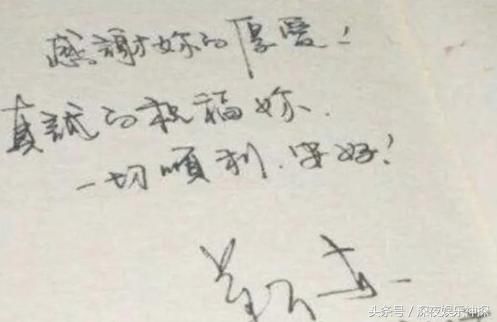 感謝妳的厚愛！
真誠的祝福妳.
一切順利.安好！
头条号／深夜娱乐神探